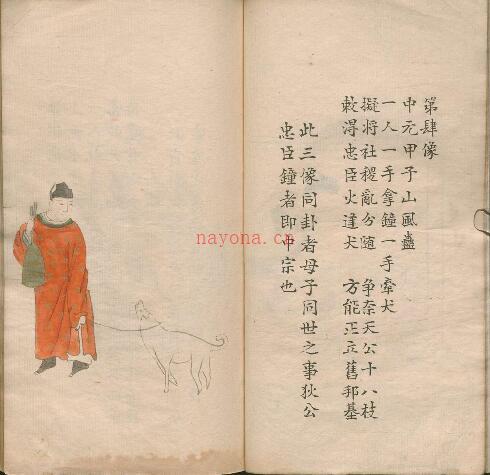 第肆像
中元甲子山風蠱
一人一手拿鐘一手牽犬
擬將社稷亂分随 争奈天公十八枝
敕得忠臣火邊犬 方能正立舊邦基
此三像同卦者母子同世之事狄公
忠臣鐘者即中宗也
nayona.cn